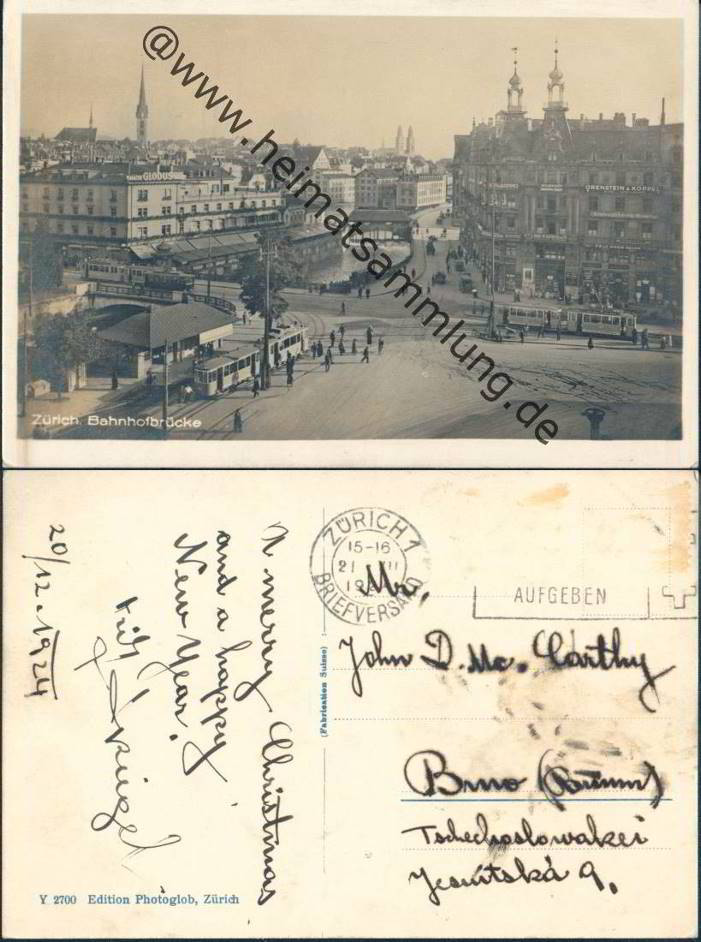 @www.heimatsammlung.de
GLOBUS
ORENSTEIN & KOPPEL
Zürich. Bahnhofbrücke
20/12.1924
A merry Christmas
and a happy
New Year!
ZÜRICH 1
15-16
21
BRIEFVERSAND
AUFGEBEN
Mr.
John D. Mc. Carthy
Brno (Brünn)
Tschechoslowakei
Jesuitská 9.
(Fabrication Suisse)
Y 2700 Edition Photoglob, Zürich